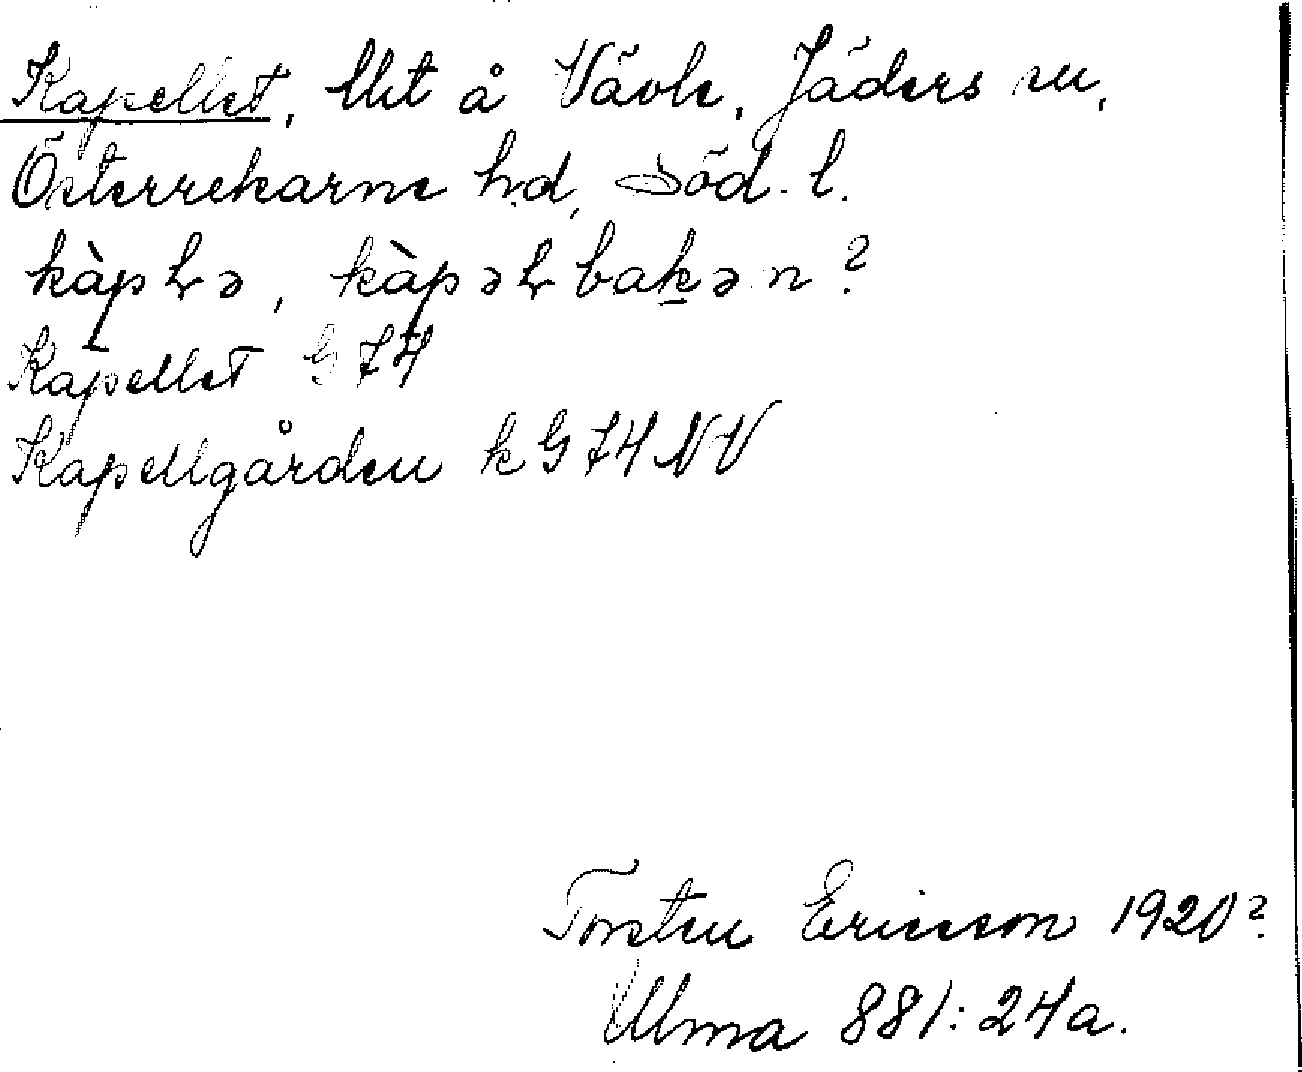 Kapellet, lht å Vävle, Jäders sn,
Österrekarne hd, Söd. l.
kàpɬə, kàpəɬbakən?
Kapellet G 74
Kapellgården k G 74 NV
Torsten Ericsson 1920?
Ulma 881:24a.